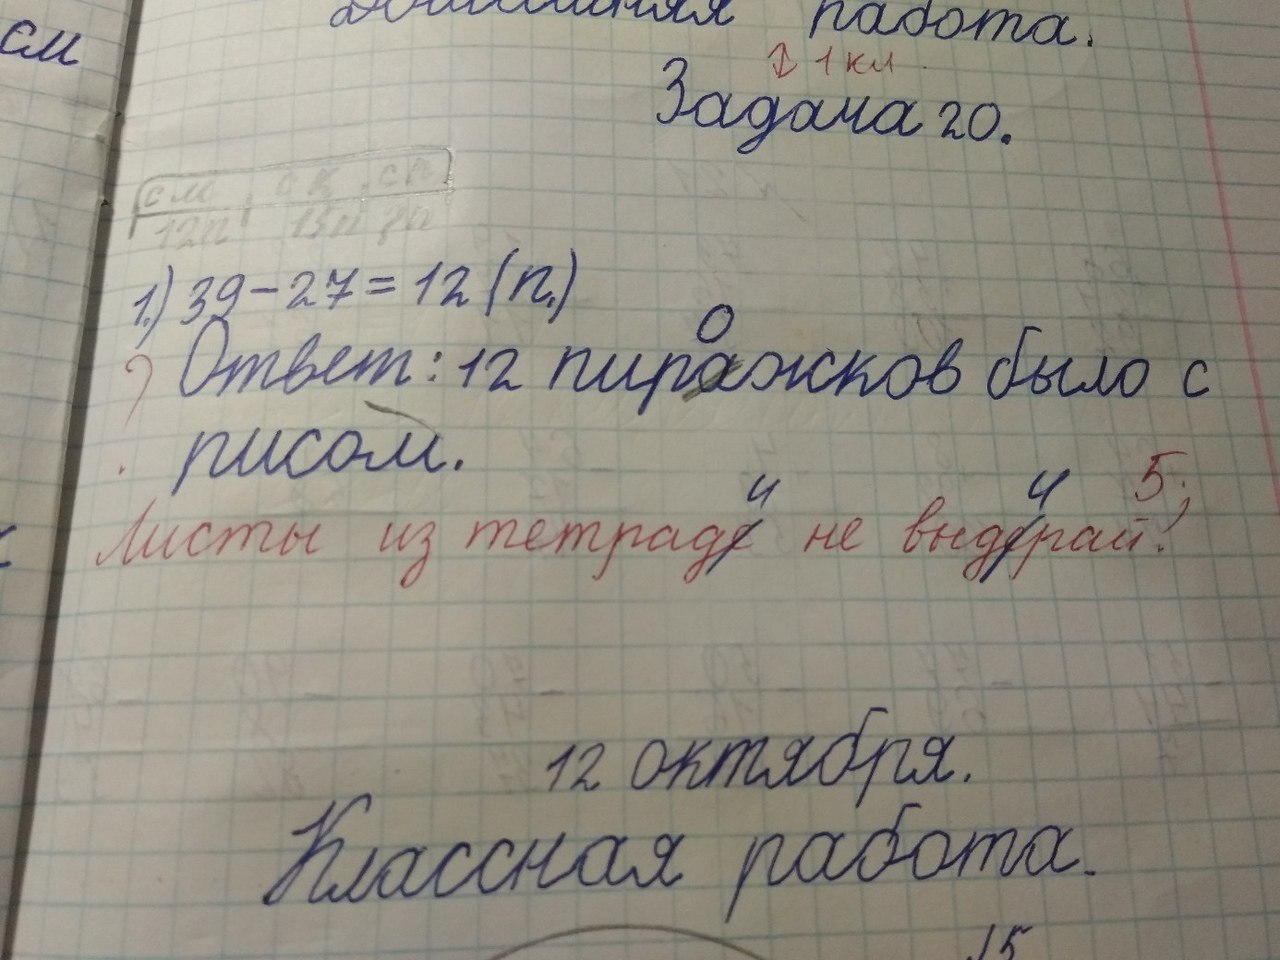 см
Домашняя работа.
↕ 1 кл
Задача 20.
1.) 39-27=12 (п.)
о
Ответ: 12 пиражков было с
рисом.
и и 5;
Листы из тетраде не выдерай!
12 октября.
Классная работа.
15